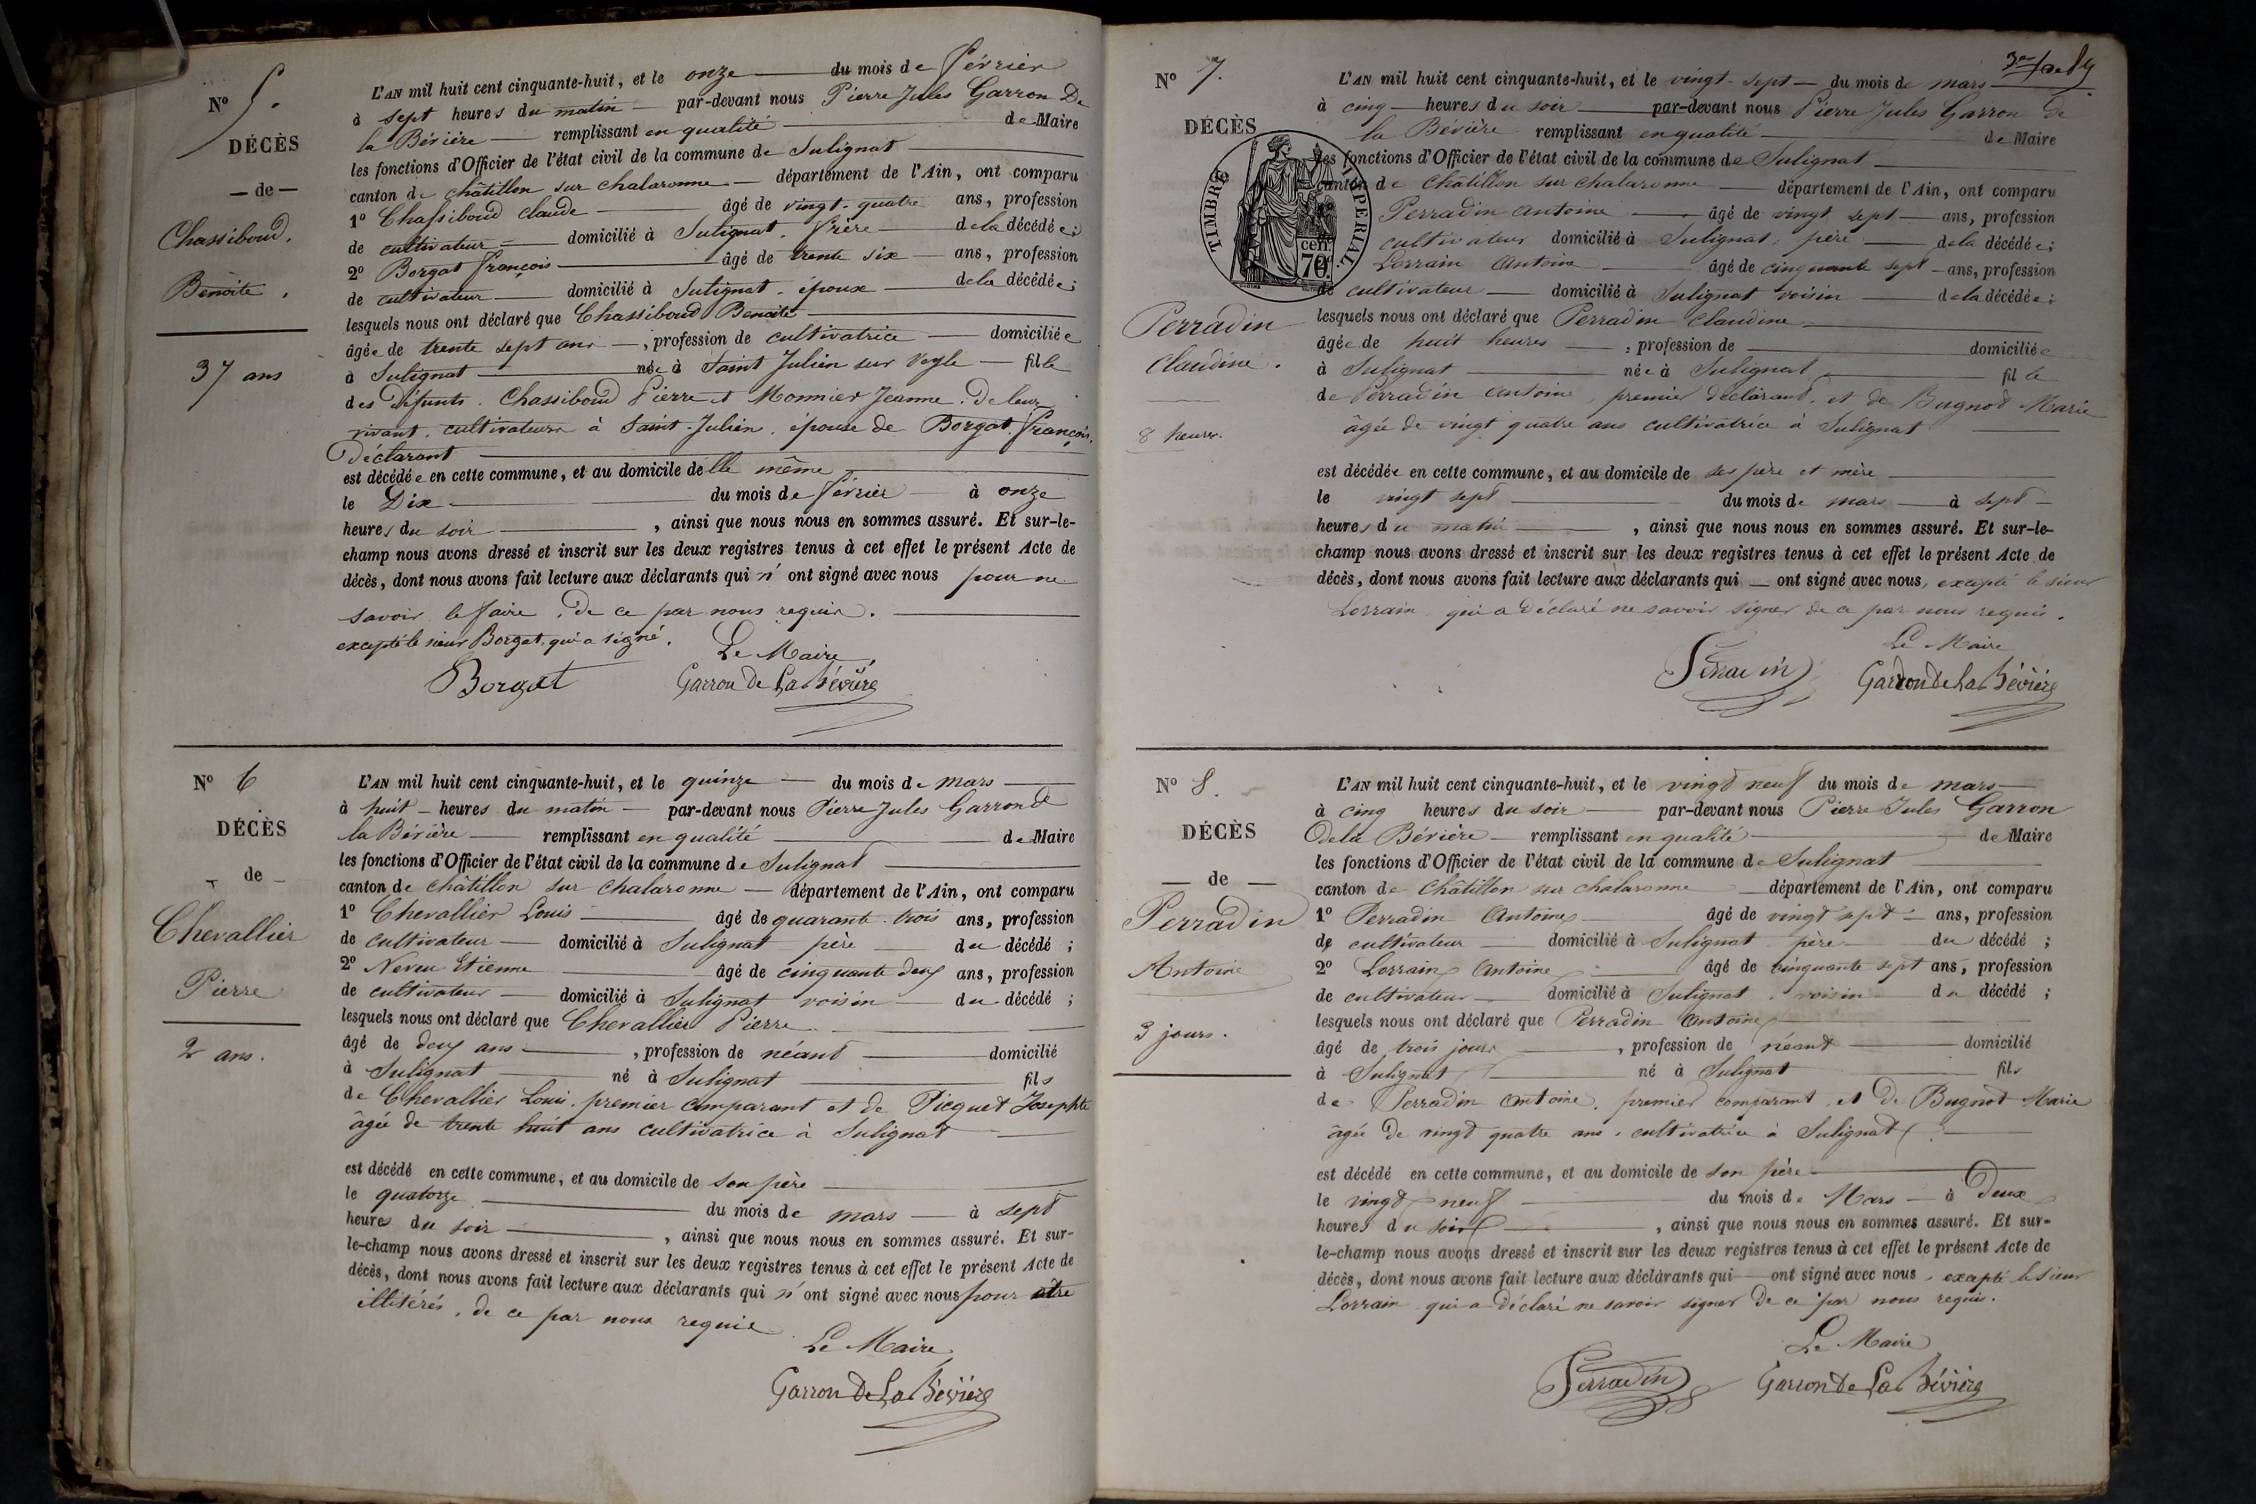 N° 5.
DÉCÈS
— de —
Chassiboud.
Benoite.
37 ans
L'AN mil huit cent cinquante-huit, et le onze du mois de février
à sept heures du matin par-devant nous Pierre Jules Garron De
la Bévière remplissant en qualité de Maire
les fonctions d'Officier de l'état civil de la commune de Sulignat
canton de châtillon sur chalaronne département de l'Ain, ont comparu
1° Chassiboud claude âgé de vingt-quatre ans, profession
de cultivateur domicilié à Sulignat. frère de la décédée;
2° Borgat françois âgé de trente six ans, profession
de cultivateur domicilié à Sulignat. époux de la décédée;
lesquels nous ont déclaré que Chassiboud Benoite
âgée de trente sept ans, profession de cultivatrice domiciliée
à Sulignat née à Saint Julien sur Veyle fille
des défunts. Chassiboud Pierre et Monnier Jeanne. De leur
vivant. cultivateurs à Saint-Julien. épouse de Borgat. françois.
Déclarant
est décédée en cette commune, et au domicile delle même
le Dix du mois de février à onze
heures du soir, ainsi que nous nous en sommes assuré. Et sur-le-
champ nous avons dressé et inscrit sur les deux registres tenus à cet effet le présent Acte de
décès, dont nous avons fait lecture aux déclarants qui n'ont signé avec nous pour ne
savoir le faire. De ce par nous requis.
excepté le sieur Borgat. qui a signé.
Le Maire,
Borgat Garron De La Bévière
N° 6
DÉCÈS
de
Chevallier
Pierre
2 ans.
L'AN mil huit cent cinquante-huit, et le quinze du mois de mars
à huit heures du matin par-devant nous Pierre Jules Garron de
la Bévière remplissant en qualité de Maire
les fonctions d'Officier de l'état civil de la commune de Sulignat
canton de châtillon sur chalaronne département de l'Ain, ont comparu
1° Chevallier Louis âgé de quarante-trois ans, profession
de cultivateur domicilié à Sulignat père du décédé;
2° Neveu Etienne âgé de cinquante deux ans, profession
de cultivateur domicilié à Sulignat voisin du décédé;
lesquels nous ont déclaré que Chevallier Pierre
âgé de deux ans, profession de néant domicilié
à Sulignat né à Sulignat fils
de Chevallier Louis. premier comparant et de Picquet Josephte
âgée de trente huit ans cultivatrice à Sulignat
est décédé en cette commune, et au domicile de son père
le quatorze du mois de mars à sept
heures du soir, ainsi que nous nous en sommes assuré. Et sur-
le-champ nous avons dressé et inscrit sur les deux registres tenus à cet effet le présent Acte de
décès, dont nous avons fait lecture aux déclarants qui n'ont signé avec nous pour etre
illitérés. de ce par nous requis
Le Maire,
Garron De La Bévière
N° 7.
DÉCÈS
TIMBRE IMPERIAL.
70 cen.
Perradin
Claudine.
8 heures.
L'AN mil huit cent cinquante-huit, et le vingt-sept du mois de mars
à cinq heures du soir par-devant nous Pierre Jules Garron de
la Bévière remplissant en qualité de Maire
les fonctions d'Officier de l'état civil de la commune de Sulignat
canton de Châtillon sur chalaronne département de l'Ain, ont comparu
Perradin Antoine âgé de vingt sept ans, profession
cultivateur domicilié à Sulignat. père de la décédée;
Lorrain Antoine âgé de cinquante sept ans, profession
de cultivateur domicilié à Sulignat voisin de la décédée;
lesquels nous ont déclaré que Perradin Claudine
âgée de huit heures, profession de domiciliée
à Sulignat née à Sulignat fille
de Perradin Antoine, premier déclarant, et de Bugnod Marie
âgée de vingt quatre ans cultivatrice à Sulignat
est décédée en cette commune, et au domicile de ses père et mère
le vingt sept du mois de mars à sept
heures du matin, ainsi que nous nous en sommes assuré. Et sur-le-
champ nous avons dressé et inscrit sur les deux registres tenus à cet effet le présent Acte de
décès, dont nous avons fait lecture aux déclarants qui ont signé avec nous, excepté le sieur
Lorrain qui a déclaré ne savoir signer de ce par nous requis.
Le Maire
Perradin Garron de La Bévière
N° 8.
DÉCÈS
— de —
Perradin
Antoine
3 jours.
L'AN mil huit cent cinquante-huit, et le vingt neuf du mois de mars
à cinq heures du soir par-devant nous Pierre Jules Garron
De la Bévière remplissant en qualité de Maire
les fonctions d'Officier de l'état civil de la commune de Sulignat
canton de Châtillon sur chalaronne département de l'Ain, ont comparu
1° Perradin Antoine âgé de vingt sept ans, profession
de cultivateur domicilié à Sulignat père du décédé;
2° Lorrain Antoine âgé de cinquante sept ans, profession
de cultivateur domicilié à Sulignat. voisin du décédé;
lesquels nous ont déclaré que Perradin Antoine
âgé de trois jours, profession de néant domicilié
à Sulignat né à Sulignat fils
de Perradin Antoine. premier comparant et de Bugnod Marie
âgée de vingt quatre ans. cultivatrice à Sulignat
est décédé en cette commune, et au domicile de son père
le vingt neuf du mois de Mars à Deux
heures du soir, ainsi que nous nous en sommes assuré. Et sur-
le-champ nous avons dressé et inscrit sur les deux registres tenus à cet effet le présent Acte de
décès, dont nous avons fait lecture aux déclarants qui ont signé avec nous, excepté le sieur
Lorrain qui a déclaré ne savoir signer De ce par nous requis.
Le Maire
Perradin Garron De La Bévière